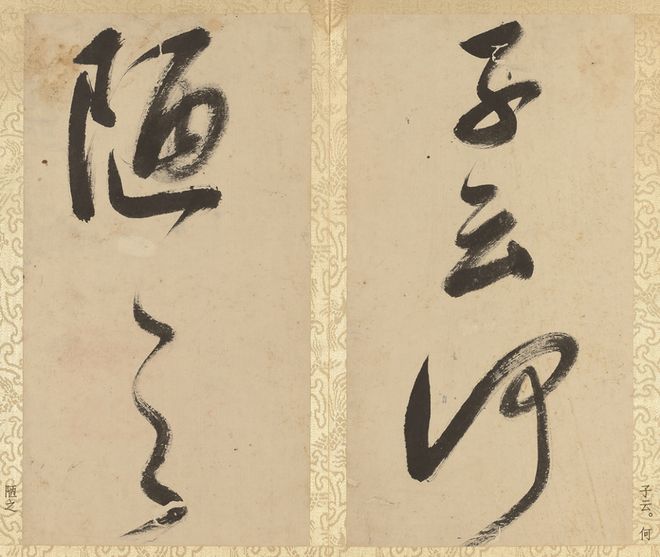 子云何
陋之
子云。何
陋之